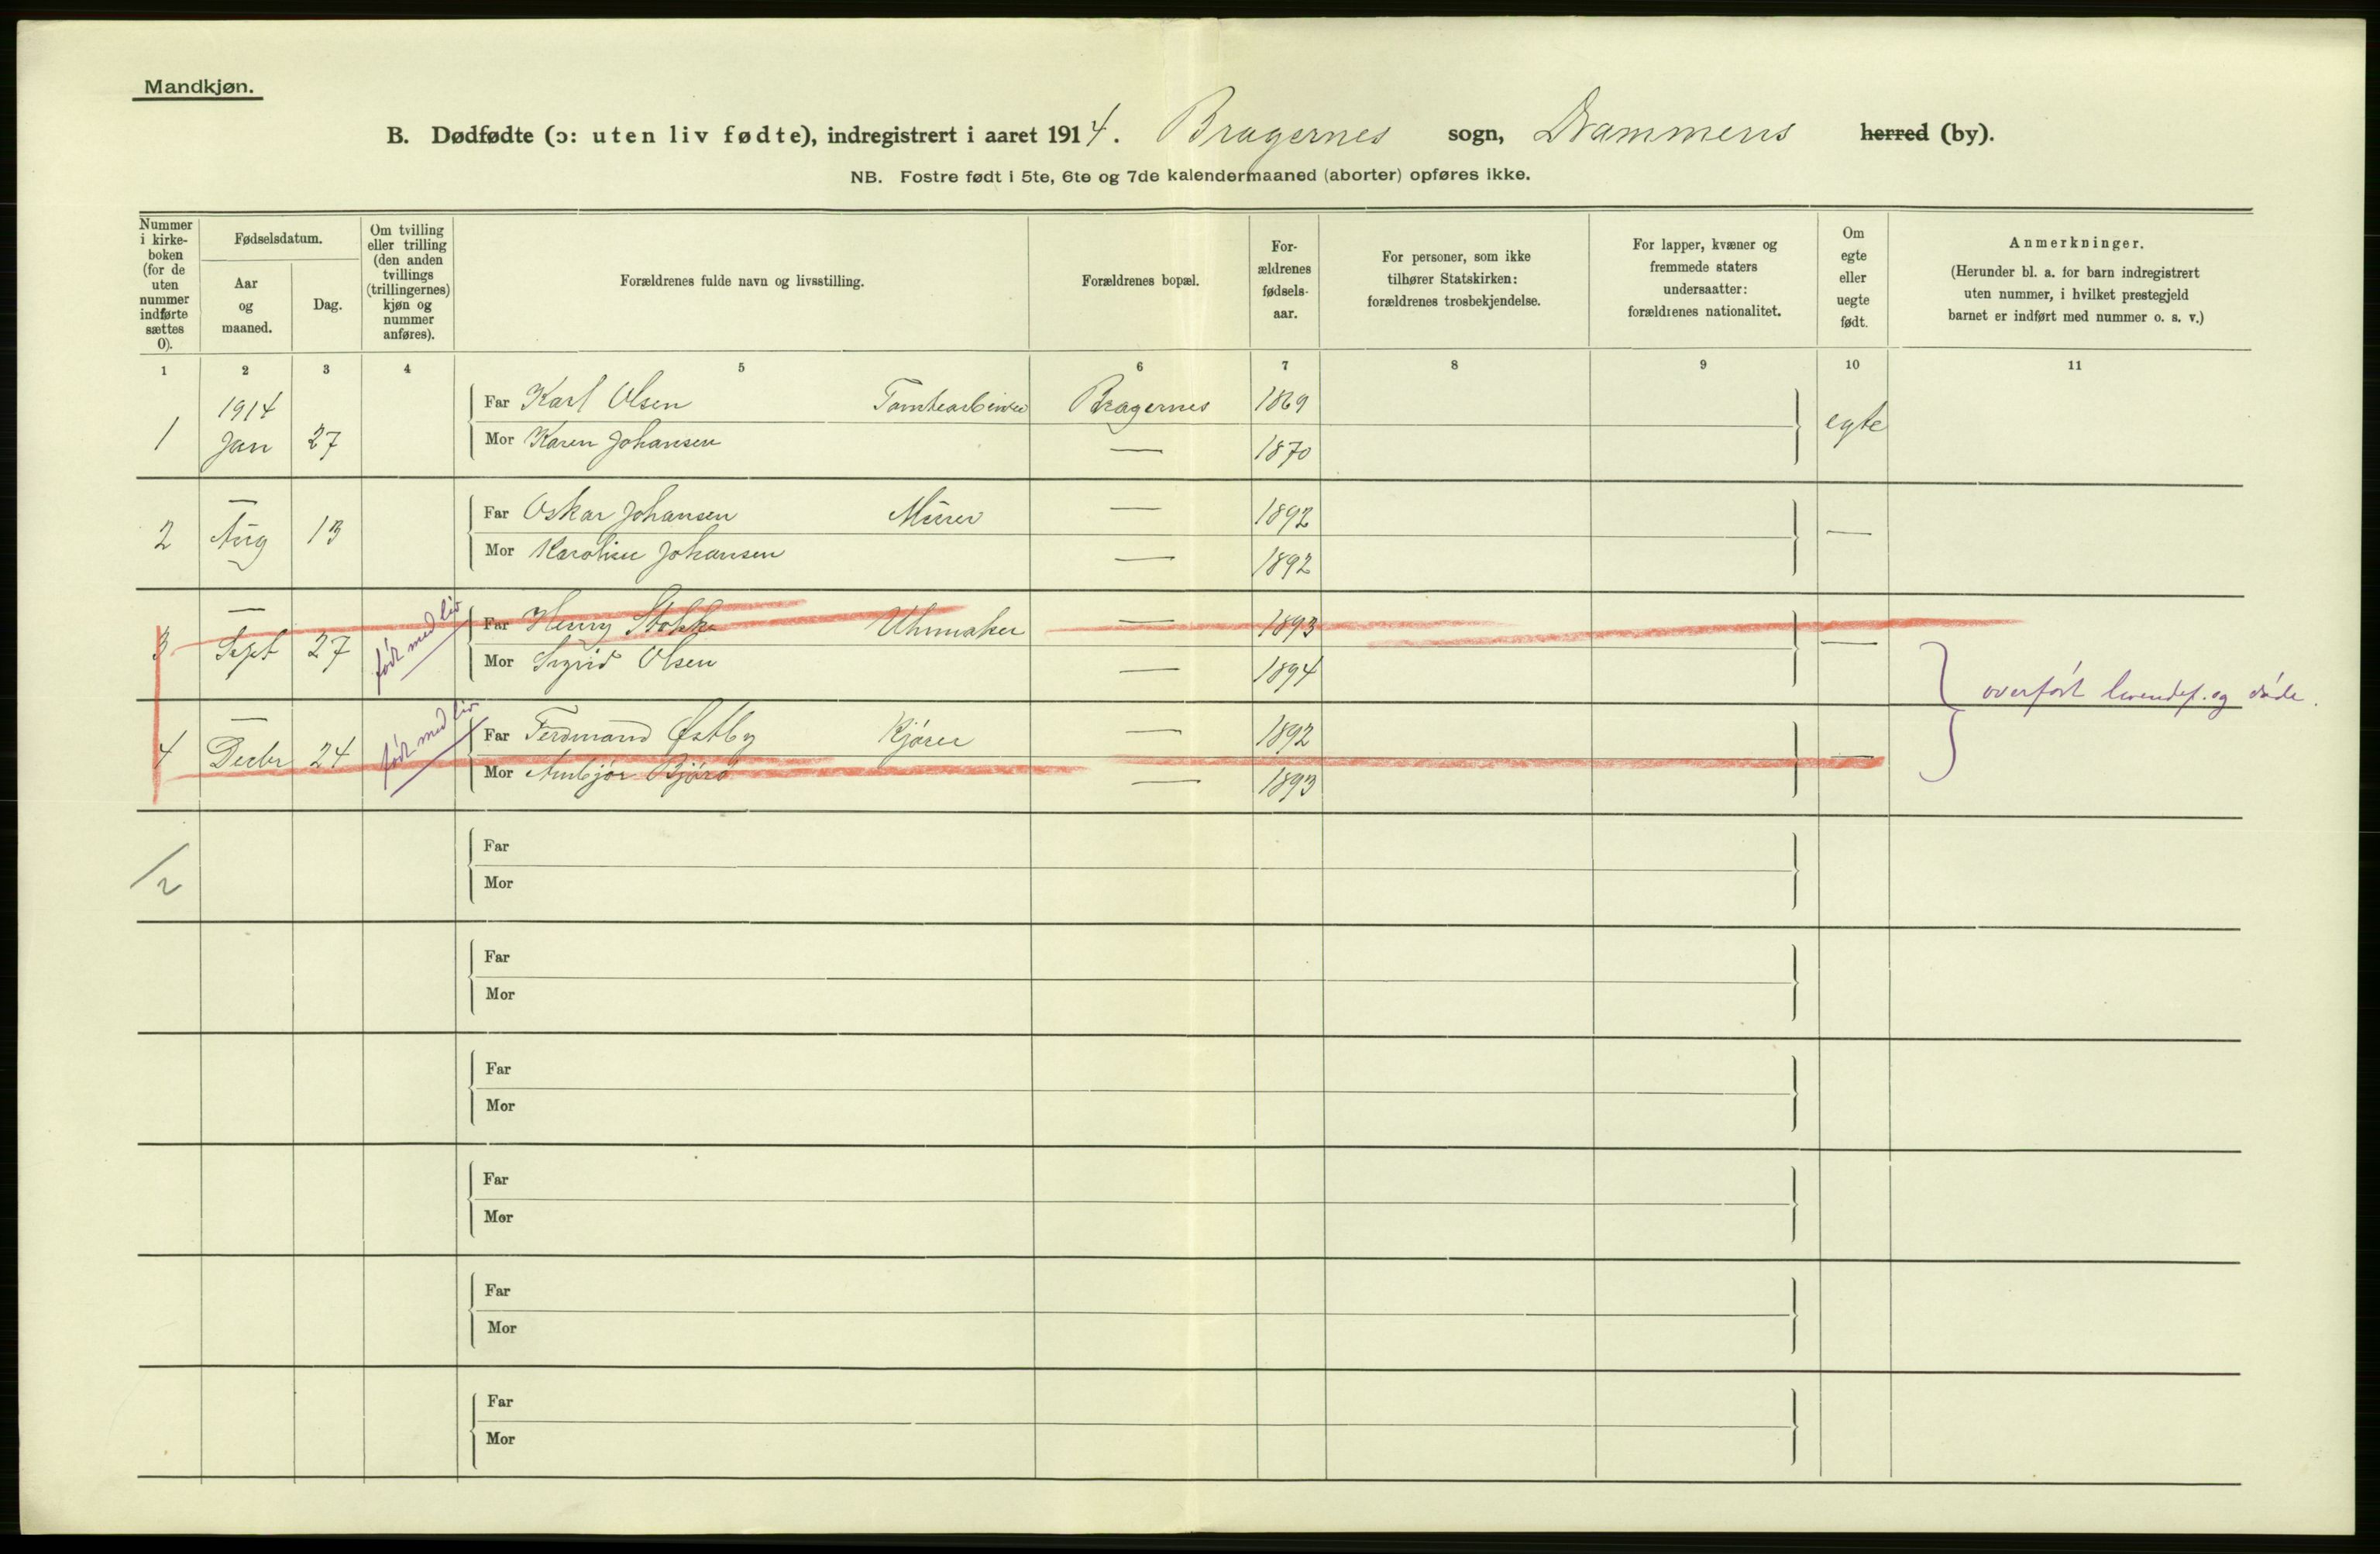 Mandkjøn.
B. Dødfødte (ɔ: uten liv fødte), indregistrert i aaret 1914. Bragernes sogn, Drammens herred (by).
NB. Fostre født i 5te, 6te og 7de kalendermaaned (aborter) opføres ikke.
Nummer i kirke-boken (for de uten nummer indførte sættes 0).
Fødselsdatum.
Aar og maaned.
Dag.
Om tvilling eller trilling (den anden tvillings (trillingernes) kjøn og nummer anføres).
Forældrenes fulde navn og livsstilling.
Forældrenes bopæl.
For-ældrenes fødsels-aar.
For personer, som ikke tilhører Statskirken: forældrenes trosbekjendelse.
For lapper, kvæner og fremmede staters undersaatter: forældrenes nationalitet.
Om egte eller uegte født.
Anmerkninger.
(Herunder bl. a. for barn indregistrert uten nummer, i hvilket prestegjeld barnet er indført med nummer o. s. v.)
1 2 3 4 5 6 7 8 9 10 11
1 1914 Jan 27 Far Karl Olsen Bragernes 1869 egte
Mor Karen Johansen — 1870
2 — Aug 13 Far Oskar Johansen Murer — 1892 —
Mor Karoline Johansen — 1892
3 — Sept 27 født med liv Far Henry Stokke Uhrmaker — 1893 —
Mor Sigrid Olsen — 1894
overført levendef. og døde.
4 — Decbr 24 født med liv Far Ferdinand Østby Kjører — 1892 —
Mor Bjørö — 1893
/2
Far
Mor
Far
Mor
Far
Mor
Far
Mor
Far
Mor
Far
Mor